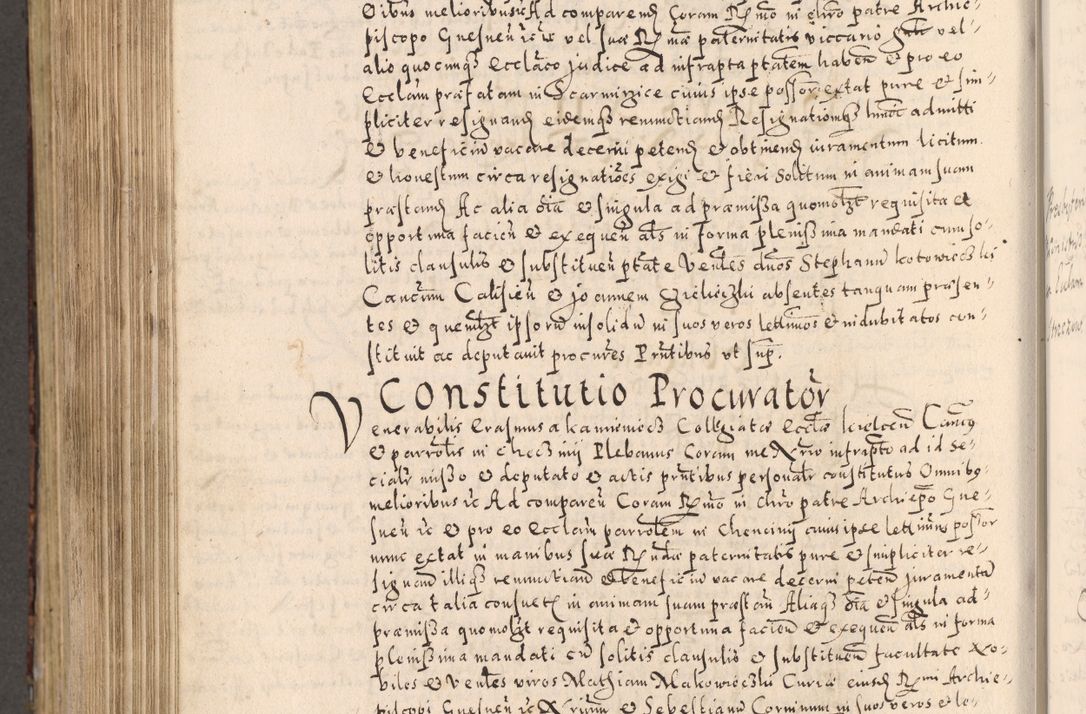 Oibus melioribus &c Ad comparend Coram Rmo in chro patre Archie-
piscopo Gnesnen &c vel suæ Rmæ paternitatis viccario vel
alio quocunq Ecclaco judice ad infrapta ptatem haben & pro eo
Ecclam præfatam in Scarmirzice cuius ipse possor extat pure & sim-
pliciter resignand eidemq renunctiand Resignationemq hmoi admitti
& beneficiu vacare decerni petend & obtinend iuramentum licitum
& honestum circa resignationes exigi & fieri solitum in animam suam
præstand Ac alia oia & singula ad præmissa quomolzt requisita et
opportuna facien & exequen als in forma plenissima mandati cum so-
litis clausulis & substituen ptate Venles duos Stephanu kotowieczki
Cancrum Calisien & joannem Zieliczki absentes tanquam præsen-
tes & quemlzt ipsoru insolidu in suos veros lettimos & indubitatos con-
stituit ac deputavit procures Prntibus vt sup.
Constitutio Procurator
Venerabilis Erasmus a kamieniecz Collegiatæ Ecclæ kielcen Cancus
& parrolis in checziny Plebanus Coram me Nrio infrapto ad id spe-
cialr misso & deputato & actis prntibus personalr constitutus Omnibq
melioribus &c Ad comparen Coram Rmo in chro patre Archiepo Gne-
snen &c & pro eo Ecclam parrolem in Chencziny cuius ipse lettimus possor
nunc extat in manibus suæ Rmdæ paternitatis pure & simpliciter re-
signan illiq renunctian & beneficiu vacare decerni peten juramentu
circa talia consuet in animam suam præstan Aliaq oia & singula ad
præmissa quomolzt requisita & opportuna facien & exequen als in forma
plenissima mandati cu solitis clausulis & substituen facultate No-
biles & Venles viros Mathiam Makowieczki Curiæ eiusd Rmi Archie-
piscopi Gnesnen &c Nrium & Sebestianu Corninum in suos veros & le-